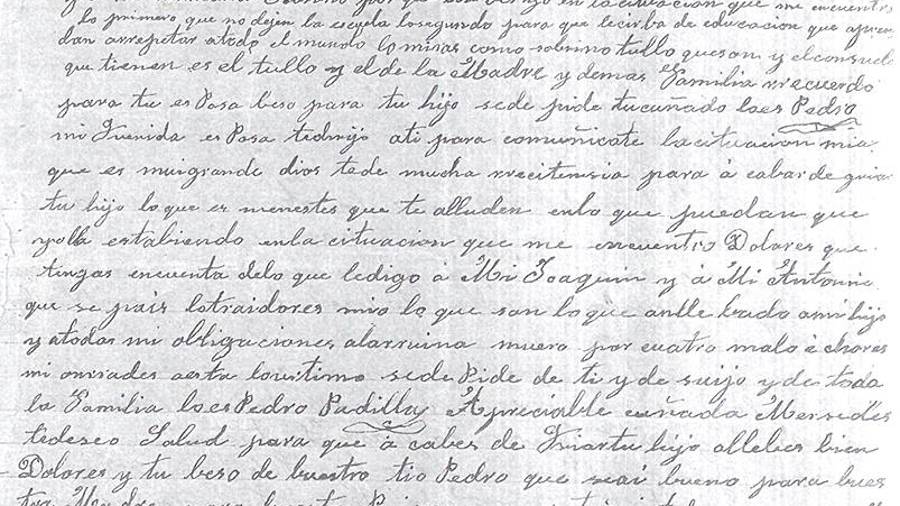 en la cituacion que me encuentro
lo primero que no dejen la escuela losegundo para que lecirba de educacion que
dan arrepetar atodo el mundo lo miras como sobrino tullo queson y elconsuelo
que tienen es el tullo y el de la Madre y demas Familia rrecuerdo
para tu esPosa beso para tu hijo sede pide tucuñado loes Pedro
mi querida esPosa tedirijo ati para comuñicate lacituacion mia
que es muigrande dios tede mucha rrecitensia para à cabar de
tu hijo lo que es menestes que te alluden enlo que puedan que
yolla estabiendo enla cituacion que me encuentro Dolores que
tengas encuenta delo que ledigo à Mi Joaquin y à Mi Antonio
que se pais lotraidores mio lo que son lo que anlle bado ami hijo
y atodas mi obligaciones alarruina muero por cuatro malo è chores
mi onrrades asta loultimo sedePide de ti y de suijo y de toda
la Familia loesPedro Padilla Apreciable cuñada Mersedes
tedeseo Salud para que à cabes de tu hijo allebes bien
Dolores y tu beso de buestro tio Pedro que seai bueno para bues
tra Madre